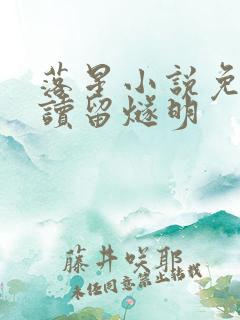 落星小说免
讀留燧明
藤井咲耶
未经同意禁止转载